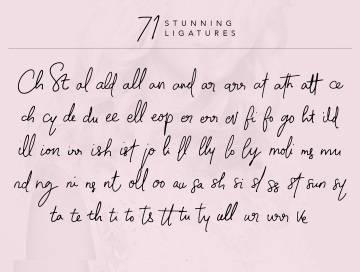 71 STUNNING
LIGATURES
Ch St al ald all an and ar arr at ath att ce
ch cy de du ee ell eop er err ev fi fo go ht ild
ill ion irr ish ist jo li ll lly lo ly mo mi ms mu
nd ng ni ns nt oll oo au sa sh si sl ss st sun sy
ta te th ti to ts tt tu ty ull ur urr ve